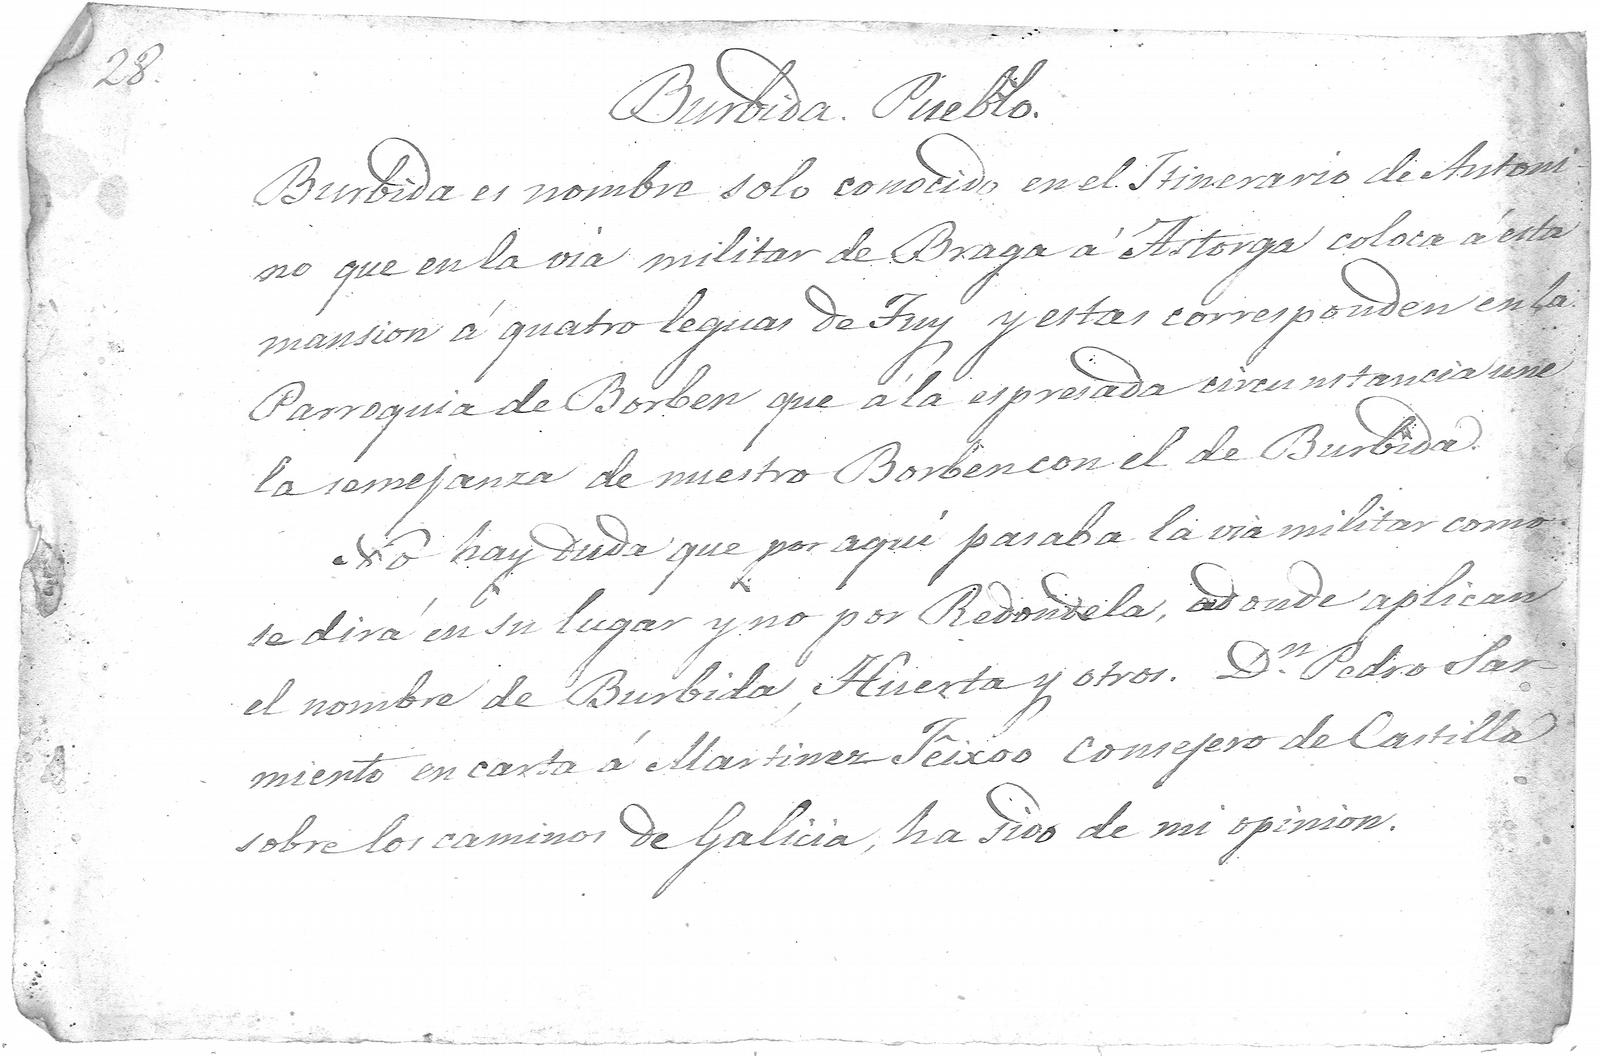 28.
Burbida. Pueblo.
Burbida es nombre solo conocido en el Itinerario de Antoni-
no que en la via militar de Braga á Astorga coloca á ésta
mansion á quatro leguas de Tuy y estas corresponden en la
Parroquia de Borben que á la espresada circunstancia une
la semejanza de nuestro Borben con el de Burbida.
No hay duda que por aqui pasaba la via militar como
se dirá en su lugar y no por Redondela, adonde aplican
el nombre de Burbida, Huerta y otros. Dn. Pedro Sar-
miento en carta á Martinez Feixoo Consejero de Castilla
sobre los caminos de Galicia, ha sido de mi opinion.